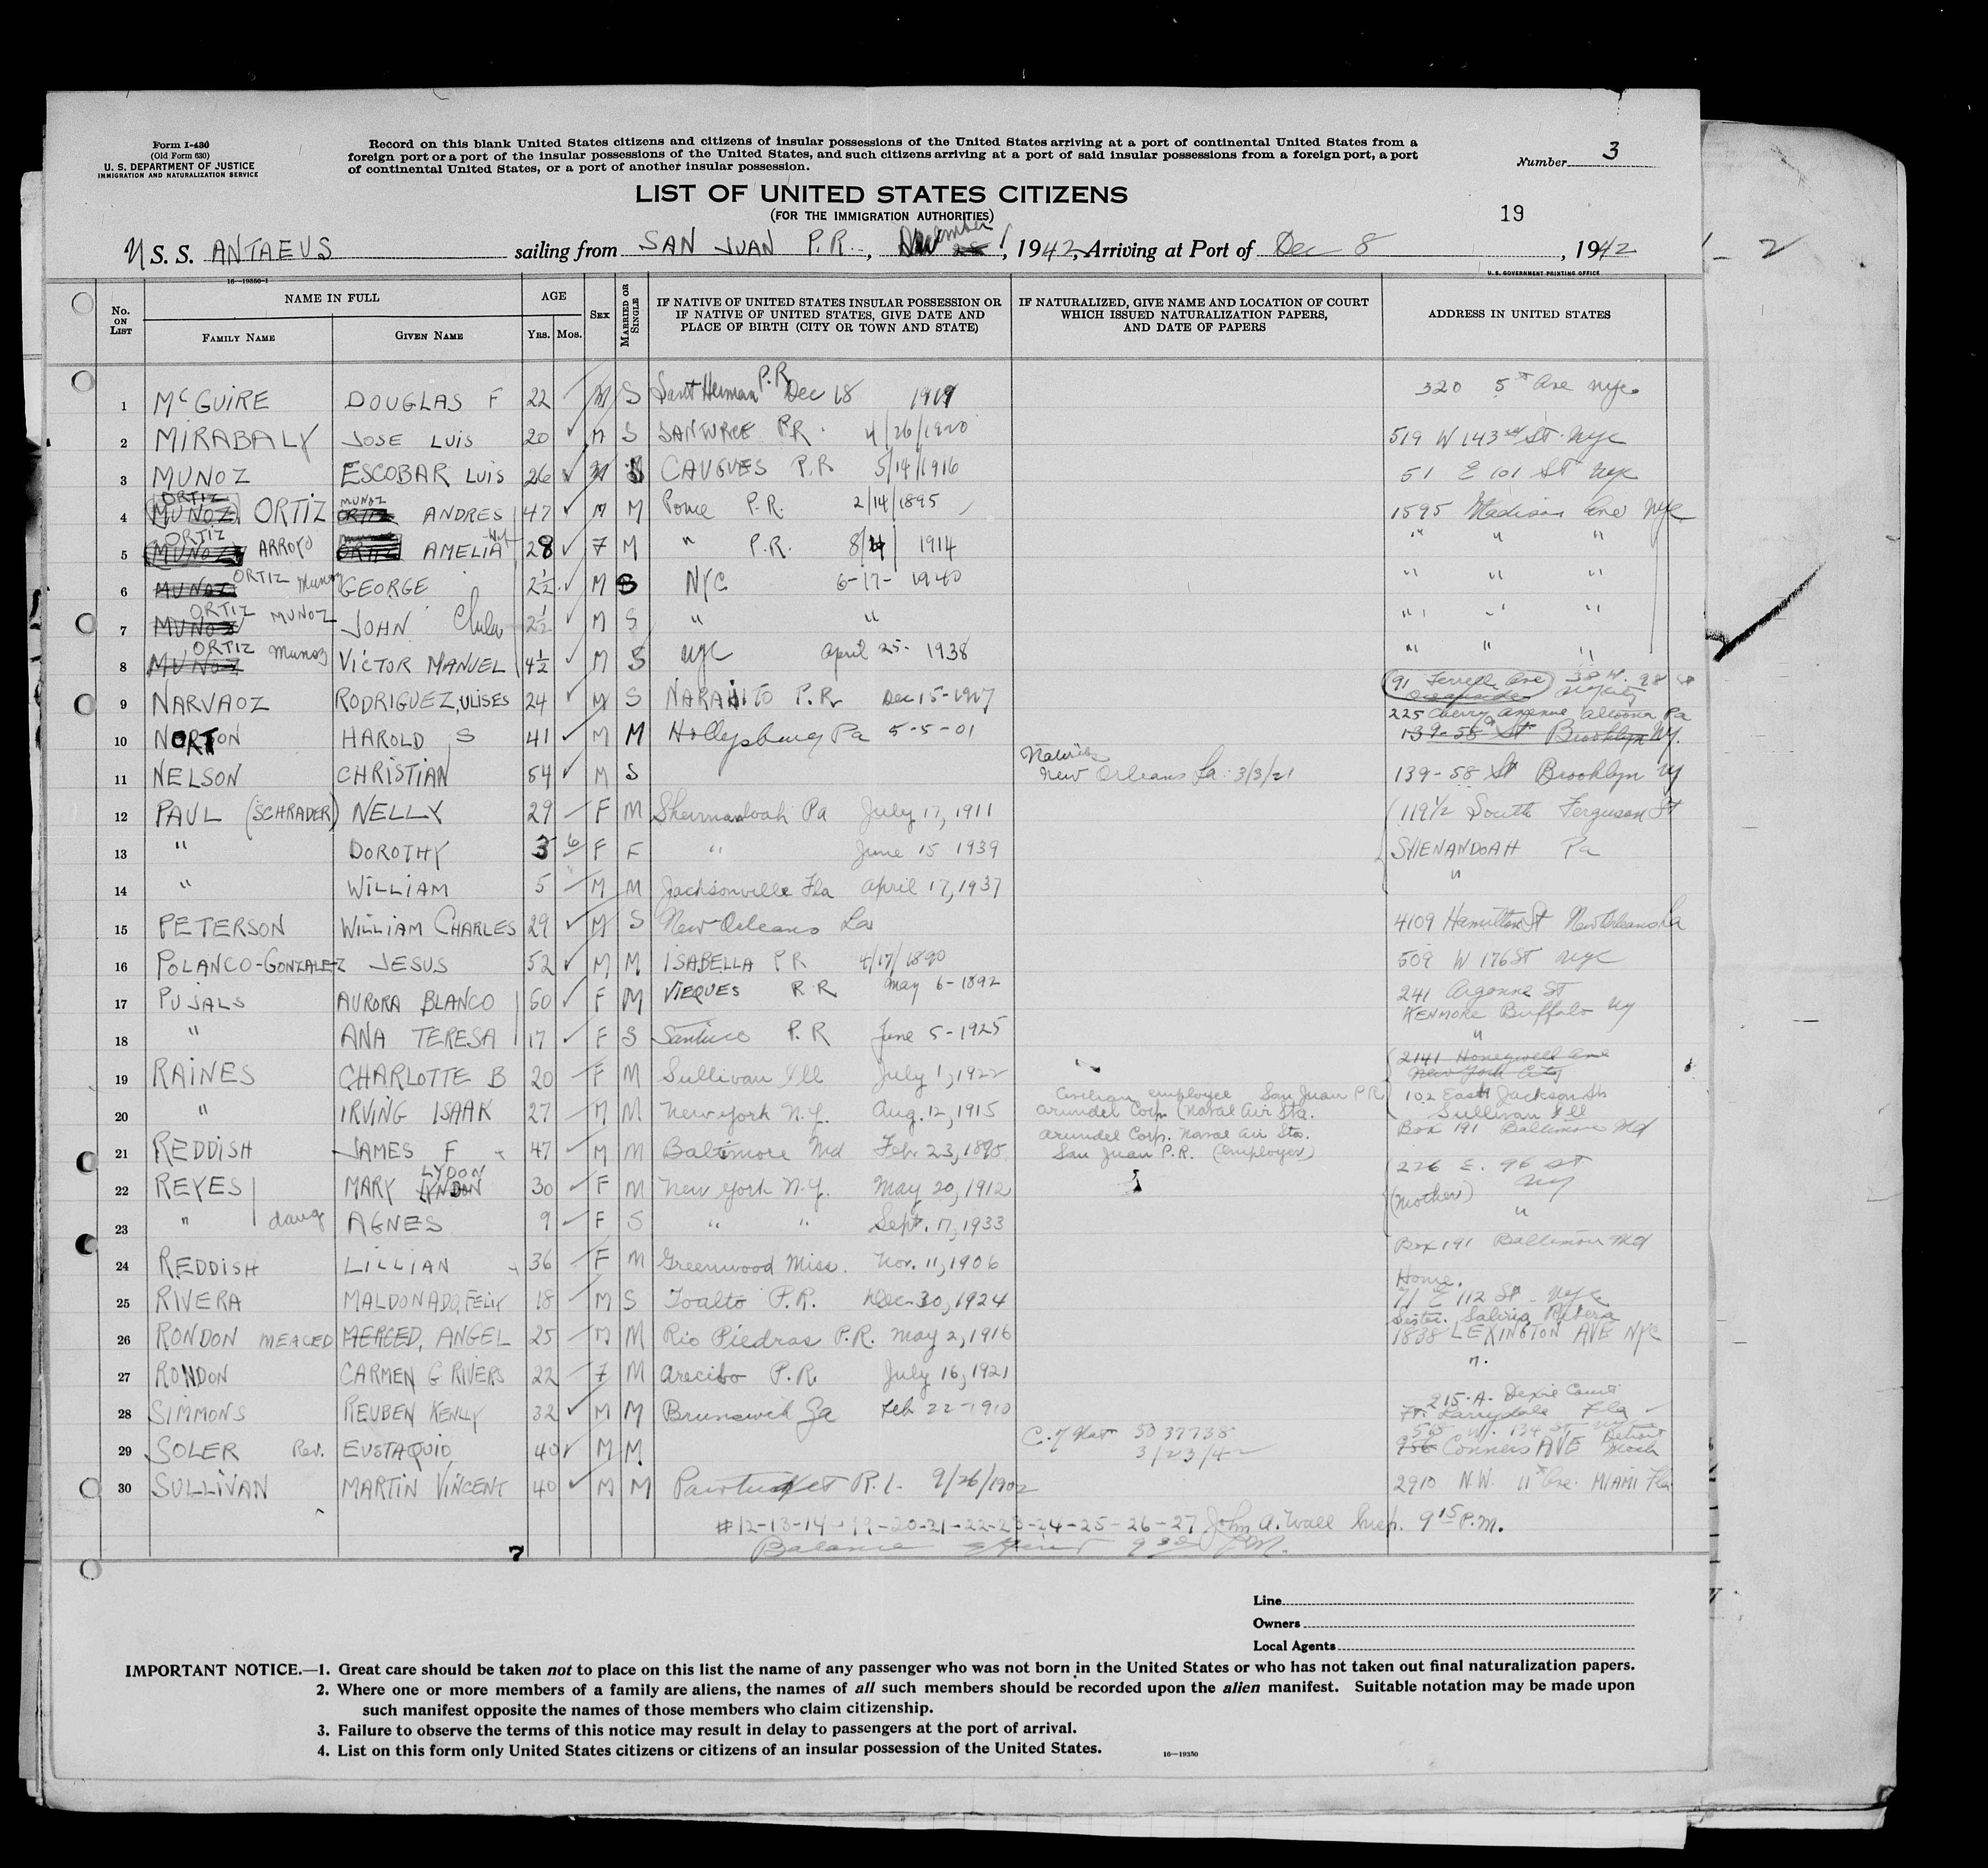 Form I-430
(Old Form 630)
U. S. DEPARTMENT OF JUSTICE
IMMIGRATION AND NATURALIZATION SERVICE
Record on this blank United States citizens and citizens of insular possessions of the United States arriving at a port of continental United States from a
foreign port or a port of the insular possessions of the United States, and such citizens arriving at a port of said insular possessions from a foreign port, a port
of continental United States, or a port of another insular possession.
Number 3
LIST OF UNITED STATES CITIZENS
(FOR THE IMMIGRATION AUTHORITIES)
19
U S. S. ANTAEUS sailing from SAN JUAN P.R., December 1, 1942, Arriving at Port of Dec 8, 1942
2
16—19350-1
U. S. GOVERNMENT PRINTING OFFICE
No. ON LIST
NAME IN FULL
FAMILY NAME
GIVEN NAME
AGE
YRS. MOS.
SEX
MARRIED OR SINGLE
IF NATIVE OF UNITED STATES INSULAR POSSESSION OR
IF NATIVE OF UNITED STATES, GIVE DATE AND
PLACE OF BIRTH (CITY OR TOWN AND STATE)
IF NATURALIZED, GIVE NAME AND LOCATION OF COURT
WHICH ISSUED NATURALIZATION PAPERS,
AND DATE OF PAPERS
ADDRESS IN UNITED STATES
1 McGUIRE DOUGLAS F 22 M S P.R. Dec 18 1919 320 5th Ave NYC
2 MIRABALY JOSE LUIS 20 ✓ M S SANTURCE P.R. 4/26/1920 519 W 143rd St. NYC
3 MUNOZ ESCOBAR LUIS 26 ✓ M S CAUGUES P.R 5/14/1916 51 E 101 St NYC
4 ORTIZ MUNOZ ORTIZ MUNOZ ORTIZ ANDRES 47 ✓ M M Ponce P.R. 2/14/1895 1595 Madison Ave NYC
5 ORTIZ MUNOZ ARROYO AMELIA 28 ✓ F M " P.R. 8/ 1914 " " "
6 MUNOZ ORTIZ Munoz GEORGE 2½ ✓ M S NYC 6-17-1940 " " "
7 ORTIZ MUNOZ MUNOZ JOHN 2½ ✓ M S " " " " "
8 ORTIZ MUNOZ Munoz VICTOR MANUEL 4½ ✓ M S NYC April 25. 1938 " " "
9 NARVAOZ RODRIGUEZ, ULISES 24 ✓ M S NARANITO P.R Dec 15-1917 91 Terrell Ave Oceanside 38 W. 98 St NY City
10 NORTON HAROLD S 41 ✓ M M Hollysburg Pa 5-5-01 225 Cherry Avenue Altoona Pa
139-58 St Brooklyn NY.
11 NELSON CHRISTIAN 54 ✓ M S New Orleans La. 3/3/21 139-58 St Brooklyn NY
12 PAUL (SCHRADER) NELLY 29 F M Shennandoah Pa July 17, 1911 119½ South Ferguson St
13 " DOROTHY 3 6 F F " June 15 1939 SHENANDOAH Pa
14 " WILLIAM 5 M M Jacksonville Fla April 17, 1937 "
15 PETERSON WILLIAM CHARLES 29 ✓ M S New Orleans La 4109 Hamilton St New Orleans La
16 POLANCO-GONZALEZ JESUS 52 ✓ M M ISABELLA P R 4/17/1890 509 W 176 ST NYC
17 PUJALS AURORA BLANCO 50 ✓ F M VIEQUES P.R May 6-1892 241 Argonne ST
KENMORE Buffalo NY
18 " ANA TERESA 17 ✓ F S P.R June 5-1925 "
19 RAINES CHARLOTTE B 20 F M Sullivan Ill July 1, 1922 2141 Honeywell Ave
New York City
20 " IRVING ISAAK 27 M M New York N.Y. Aug. 12, 1915 Civilian employee San Juan P.R.
Arundel Corp (Naval Air Sta. 102 East Jackson St
Sullivan Ill
21 REDDISH JAMES F 47 M M Baltimore Md Feb 23, 1895 Arundel Corp. Naval Air Sta.
San Juan P.R. (employer) Box 191 Baltimore Md
22 REYES MARY LYDON LYNDON 30 F M New York N.Y. May 20, 1912 226 E. 96 ST
NY
(mother)
23 " daug AGNES 9 F S " " Sept. 17, 1933 "
24 REDDISH LILLIAN 36 F M Greenwood Miss. Nov. 11, 1906 Box 191 Baltimore Md
25 RIVERA MALDONADO, FELIX 18 M S Toalto P.R. Dec. 30, 1924 Home.
71 E 112 St NYC
26 RONDON MERCED MERCED, ANGEL 25 M M Rio Piedras P.R. May 2, 1916 Sister. Rivera
1838 LEXINGTON AVE NYC
27 RONDON CARMEN G RIVERS 22 F M Arecibo P.R. July 16, 1921 "
28 SIMMONS REUBEN KENLY 32 ✓ M M Brunswick Ga Feb 22-1910 215-A. Dixie Court
Ft. Laurdale Fla
29 SOLER Rev. EUSTAQUIO 40 ✓ M M C. of Nat 5037738
3/23/42 515 W. 134 ST NY
956 Conners AVE Detroit Mich
30 SULLIVAN MARTIN VINCENT 40 ✓ M M Pawtucket R.I. 9/26/1902 2910 N.W. 11th Ave. MIAMI Fla.
#12-13-14-19-20-21-22-23-24-25-26-27 John A. Wall Insp. 9 15 P.M.
Balance P.M.
7
Line
Owners
Local Agents
IMPORTANT NOTICE.—1. Great care should be taken not to place on this list the name of any passenger who was not born in the United States or who has not taken out final naturalization papers.
2. Where one or more members of a family are aliens, the names of all such members should be recorded upon the alien manifest. Suitable notation may be made upon
such manifest opposite the names of those members who claim citizenship.
3. Failure to observe the terms of this notice may result in delay to passengers at the port of arrival.
4. List on this form only United States citizens or citizens of an insular possession of the United States.
16—19350